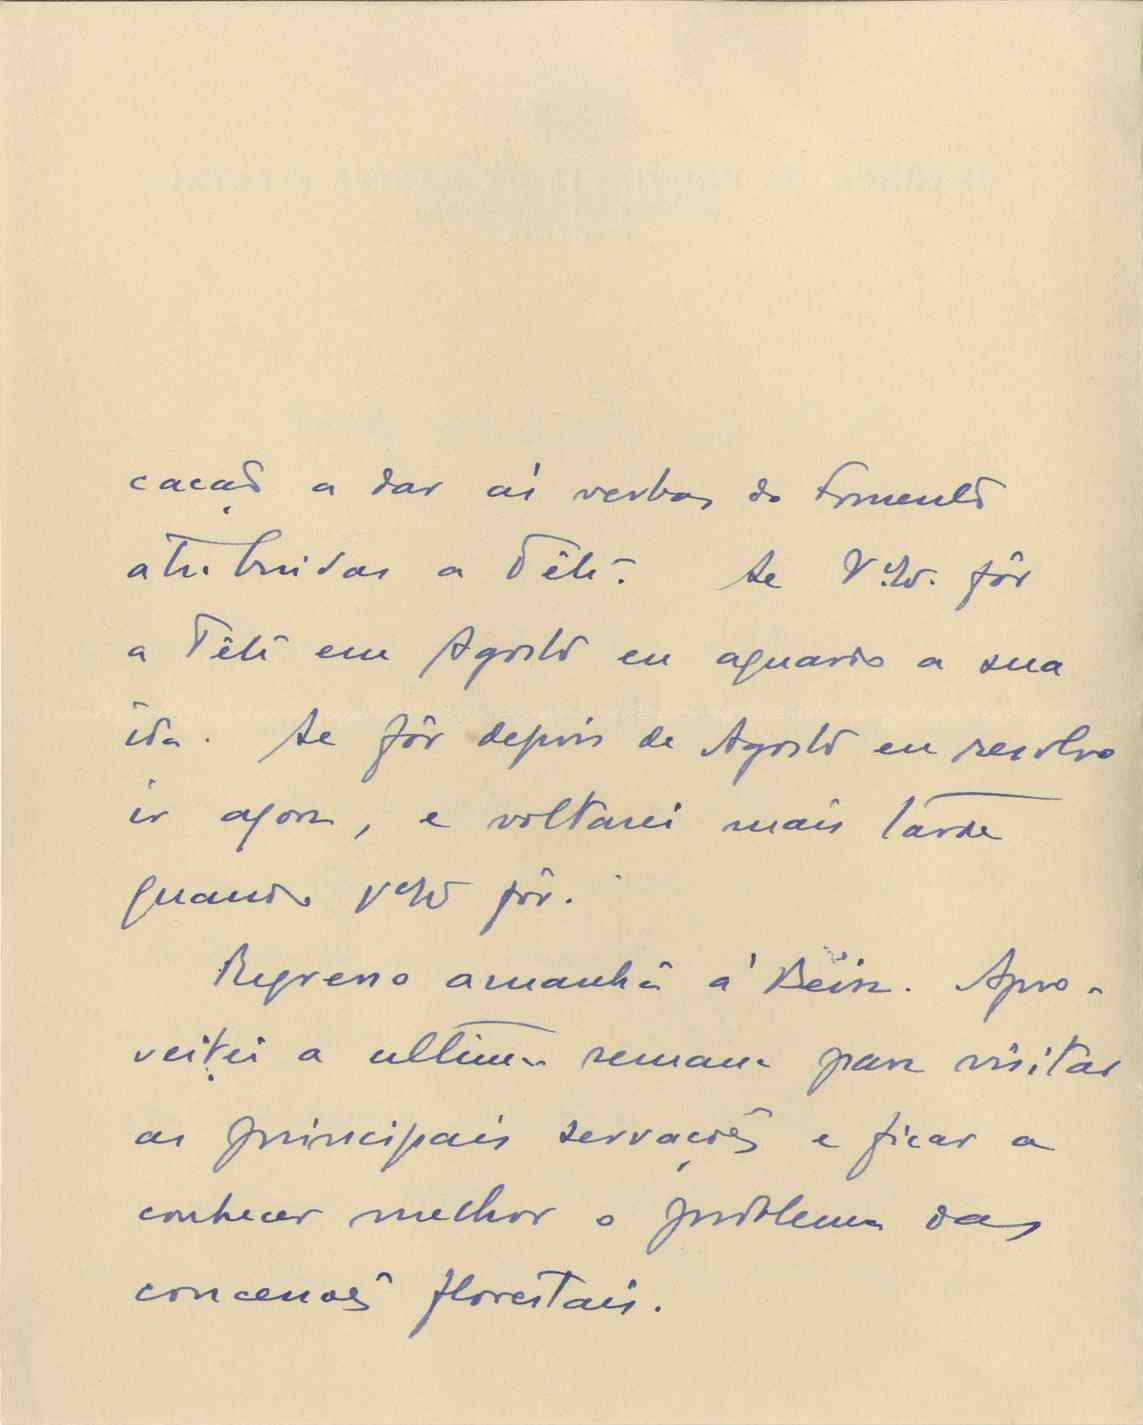 cação a dar às verbas do Fomento
atribuidas a Tête. Se V.Exª. fôr
a Tête em Agosto eu aguardo a sua
ida. Se fôr depois de Agosto eu resolvo
ir agora, e voltarei mais tarde
quando V.Exª fôr.
Regresso amanhã á Beira. Apro-
veitei a ultima semana para visitar
as principais serrações e ficar a
conhecer melhor o problema das
concessões florestais.